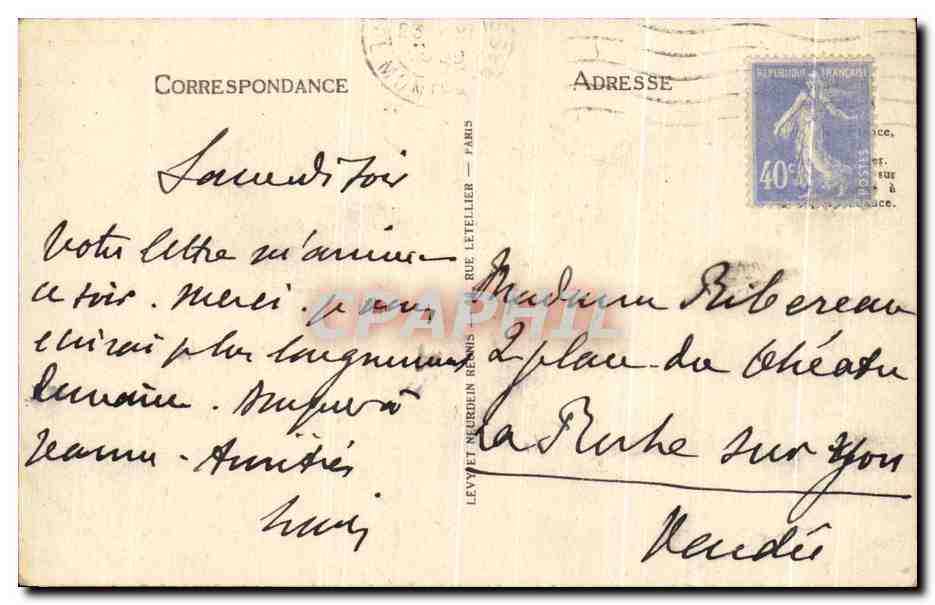 CORRESPONDANCE
ADRESSE
RÉPUBLIQUE FRANÇAISE
40c
POSTES
Samedi soir
Votre lettre m'arrive
ce soir. Merci. je vous
écrirai plus longuement
demain. à
Jeanne - Amitiés
Madame Ribereau
2 place du théâtre
La Roche sur Yon
Vendée
LEVY ET NEURDEIN REUNIS RUE LETELLIER — PARIS
sur
à
CPAPHIL